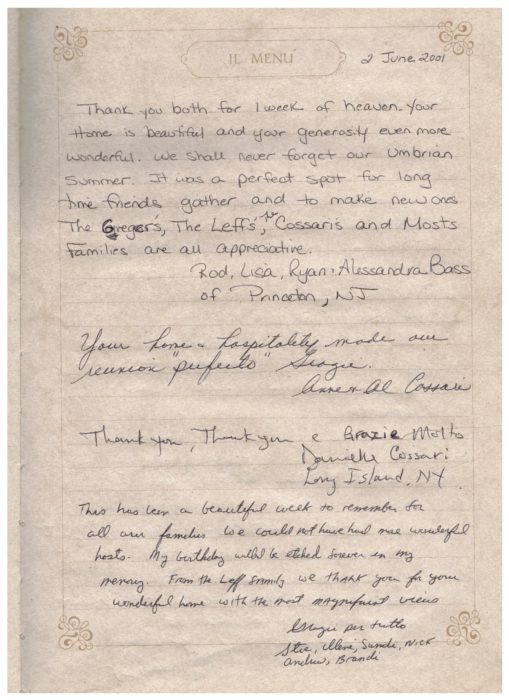 IL MENÚ
2 June 2001
Thank you both for 1 week of heaven. Your
Home is beautiful and your generosity even more
wonderful. We shall never forget our Umbrian
Summer. It was a perfect spot for long
time friends gather and to make new ones
The Greger's, The Leff's, the Cossaris and Mosts
Families are all appreciative.
Rod, Lisa, Ryan + Alessandra Bass
of Princeton, NJ
Your home & hospitality made our
reunion "perfecto" Grazie.
Anne & Al Cossari
Thank you, Thank you e Grazie Molto
Danielle Cossari
Long Island, NY
This has been a beautiful week to remember for
all our families We could not have had more wonderful
hosts. My birthday will be etched forever in my
memory. From the Leff Family we thank you for your
wonderful home with the most magnificent views
Grazie per tutto
Stee, Illene, Sande, Nick
Andrew, Brandi